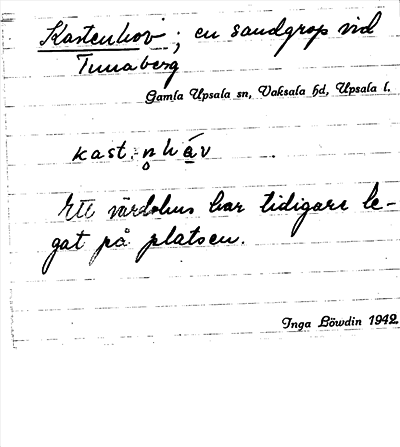 Kastenhov ; en sandgrop vid
Tunaberg
Gamla Upsala sn, Vaksala hd, Upsala l.
kast.n̥hάv
Ett värdshus har tidigare le-
gat på platsen.
Inga Löwdin 1942.